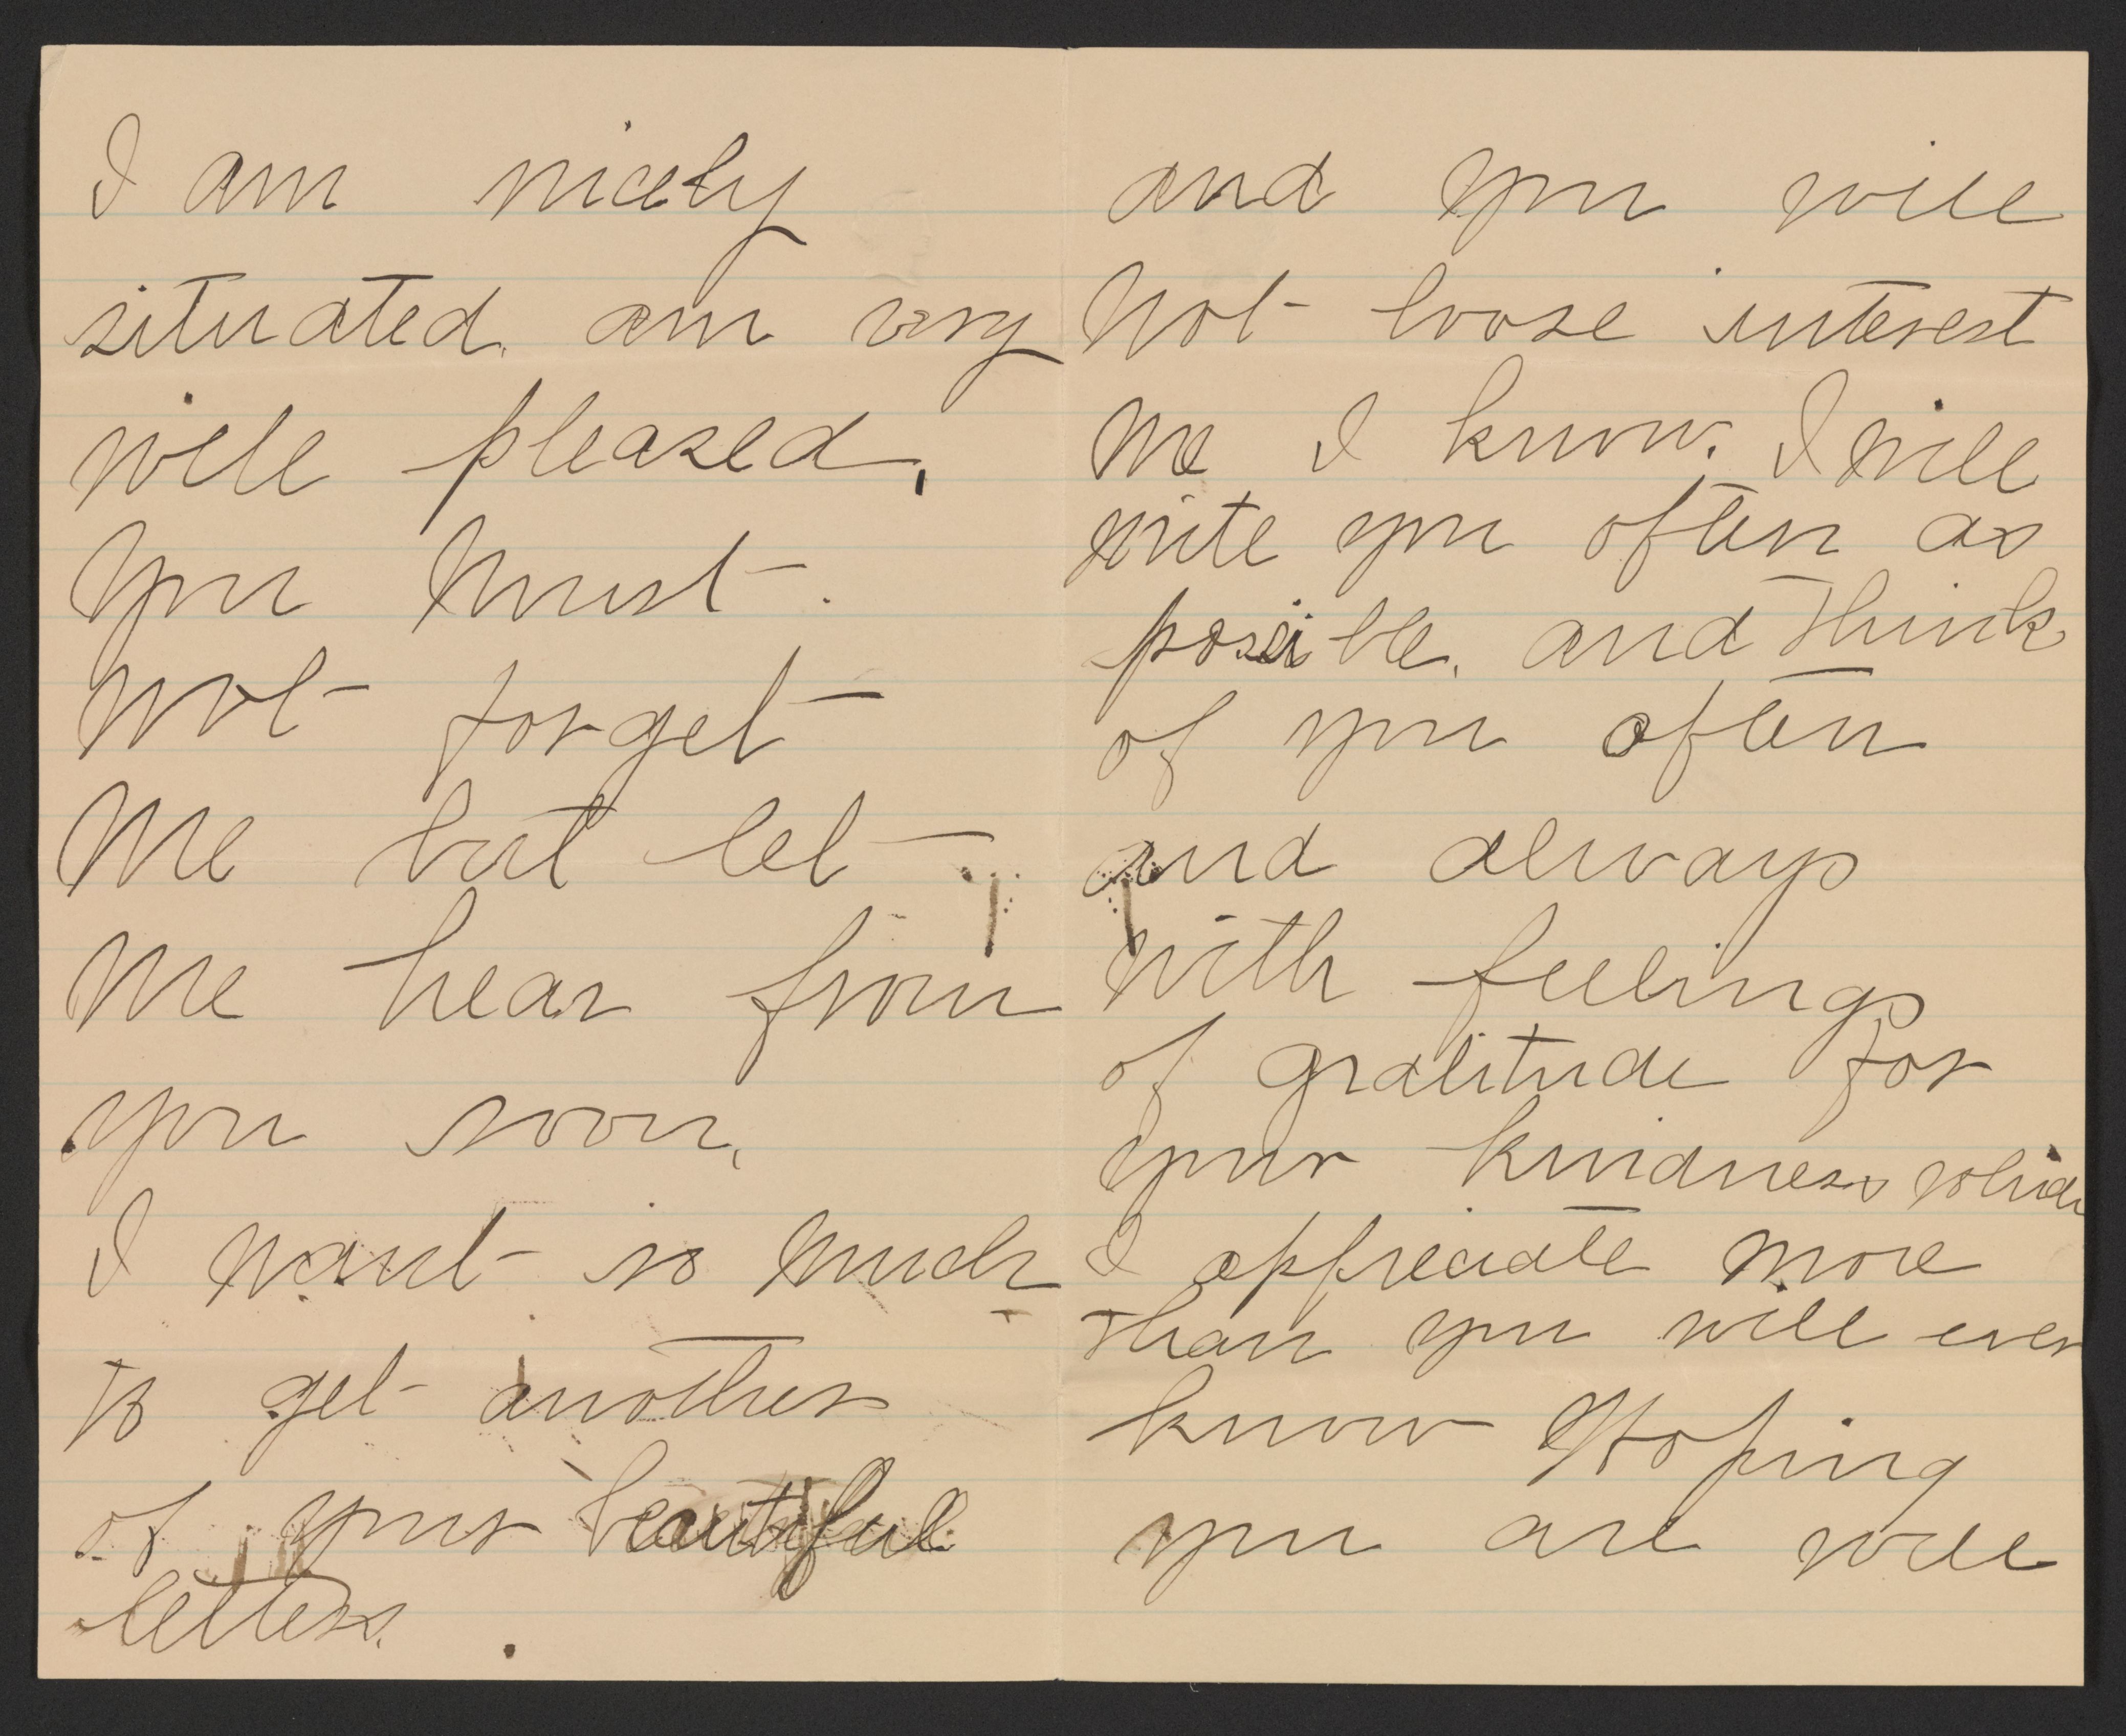 I am nicely
situated. am very
well pleased,
You must
not forget
me but let
me hear from
you soon,
I want so much
to get another
of your beautiful
letters.
and you will
not loose interest
me I know. I will
write you often as
possible. and think
of you often
and always
with feelings
of gratitude for
your kindness which
I appreciate more
than you will ever
know Hoping
you are well